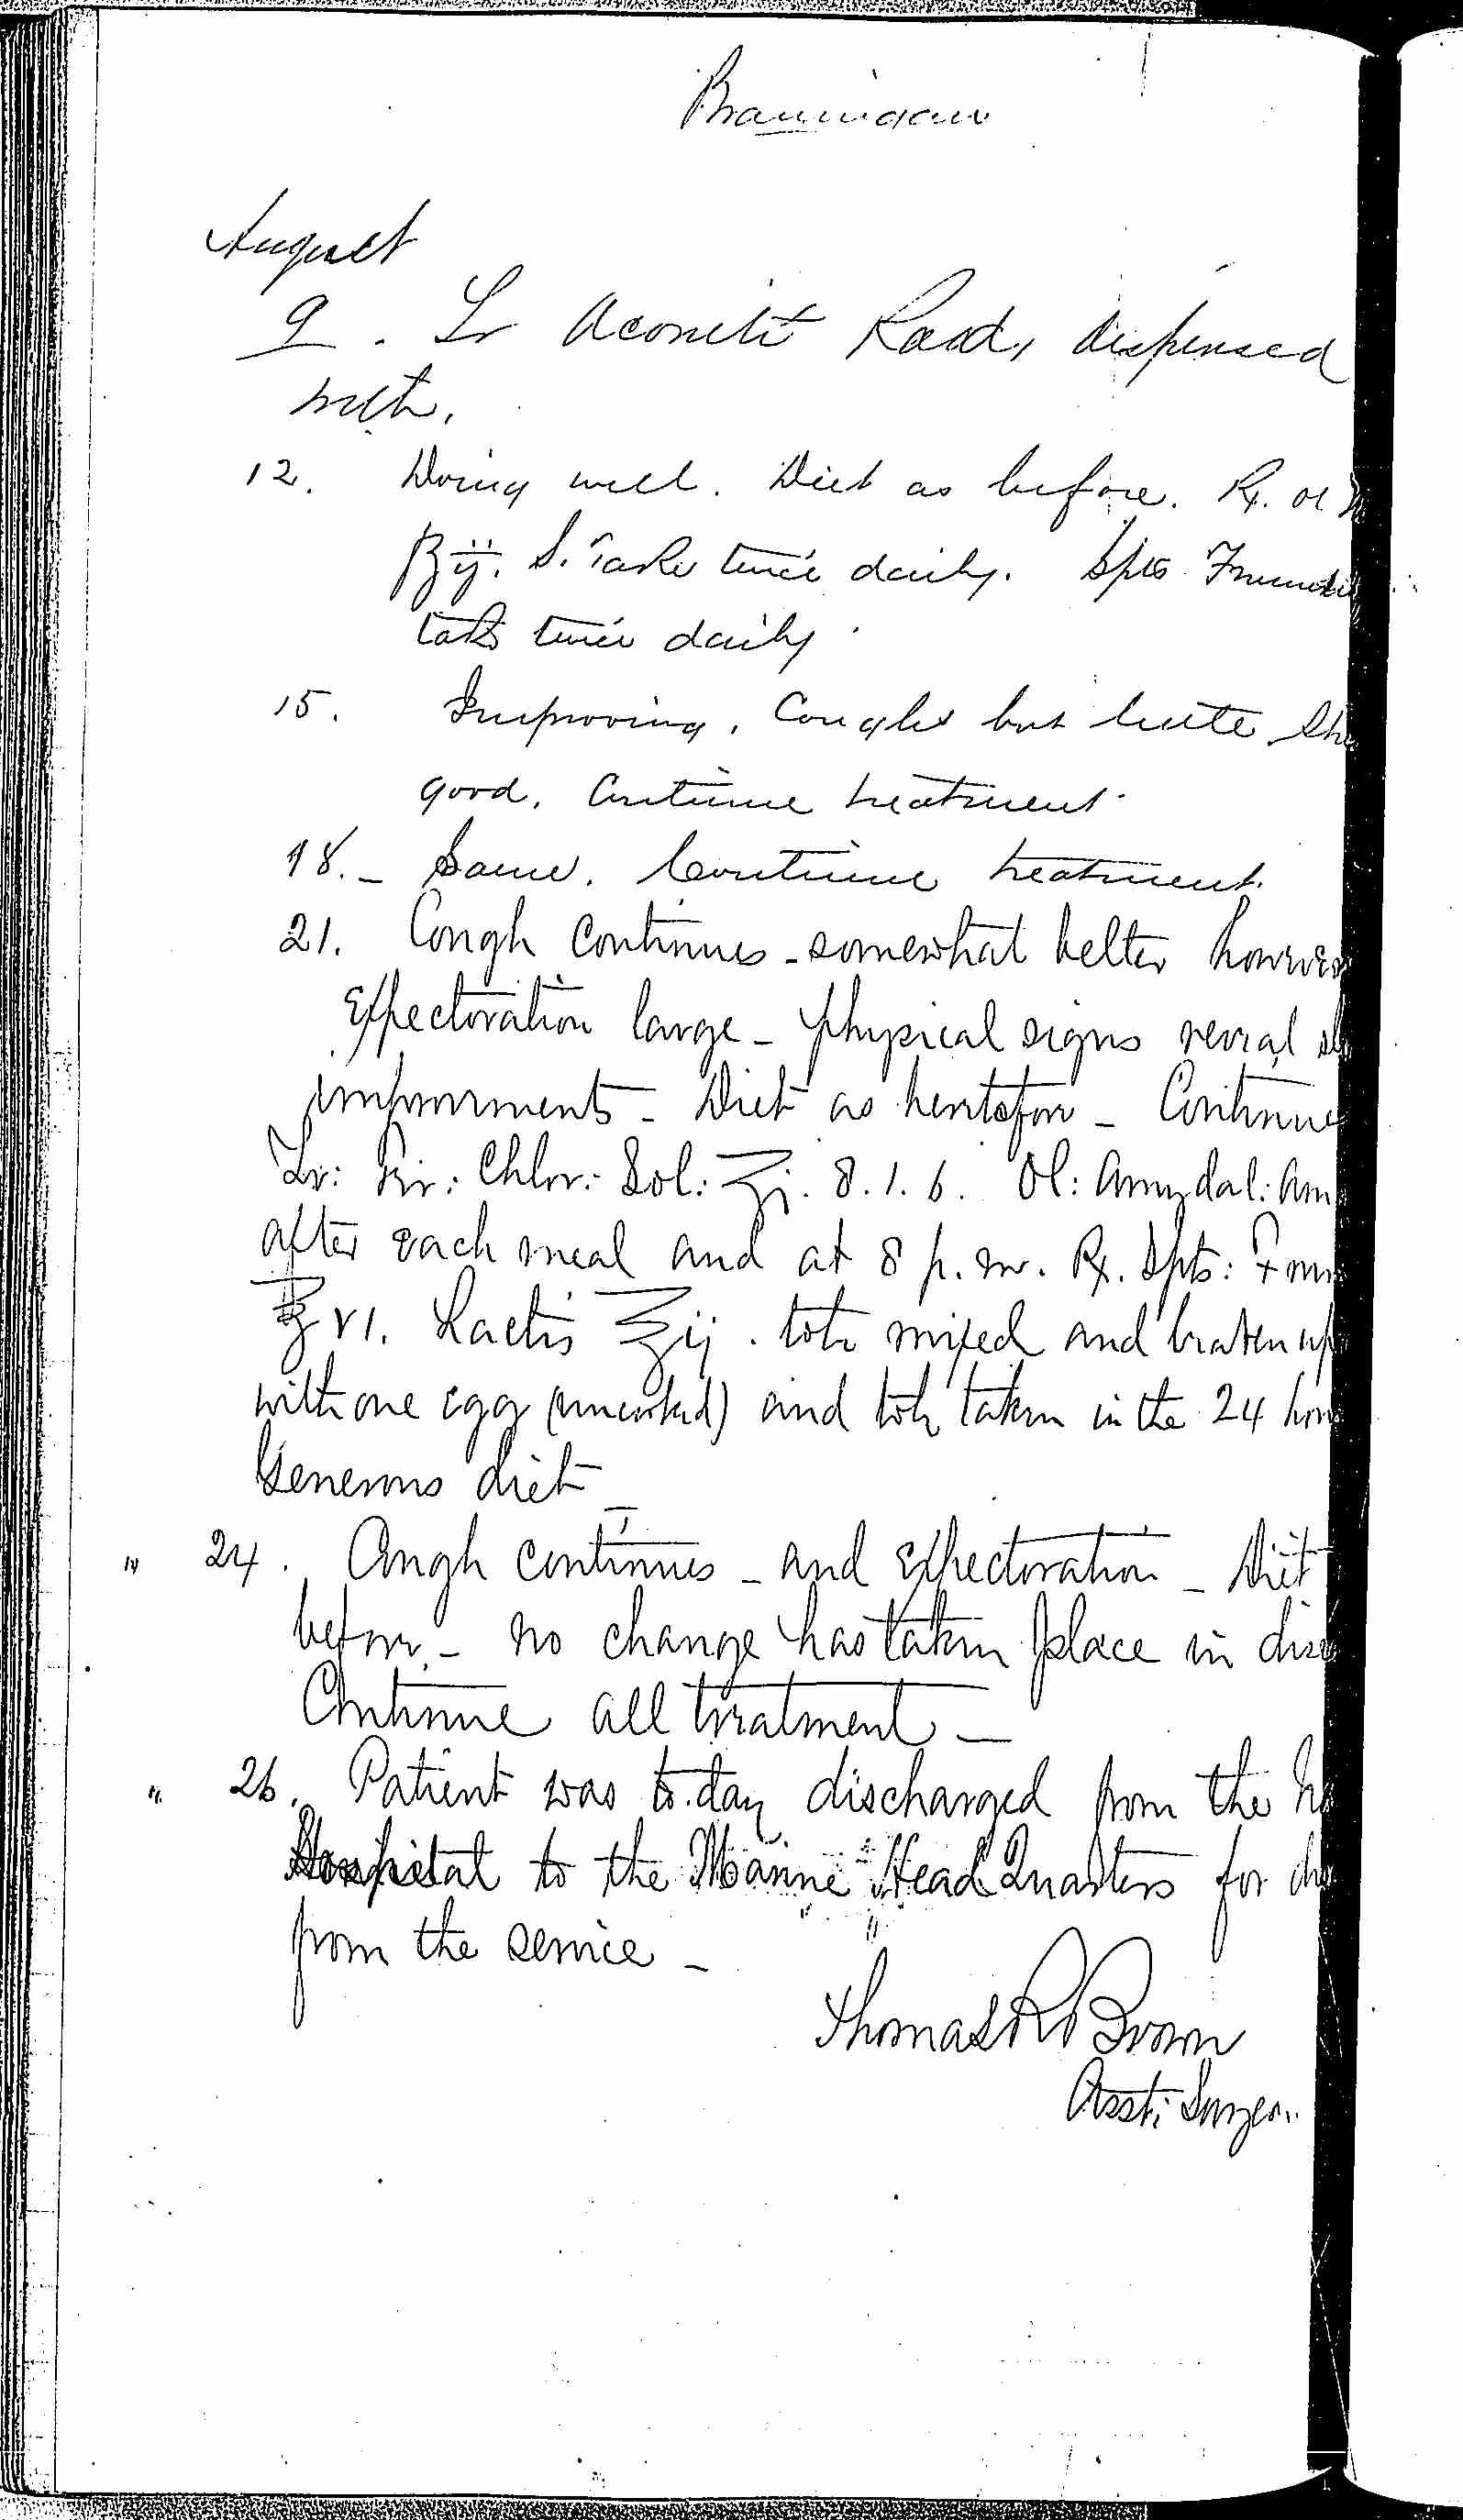 Brannigan
August
9. Tr Aconiti Rad, dispensed
with.
12. Doing well. Diet as before. Rx. Ol
℥ij. S. Take twice daily. Spts Frumenti
take twice daily.
15. Improving, Coughs but little
good. Continue treatment.
18. - Same. Continue treatment.
21. Cough continues - somewhat better however
Expectoration large - physical signs reveal
improvements - Diet as heretofore - Continue
Tr: Fir: Chlor: Sol: ℥j. 8. 1. 6. Ol: Amygdal: Am
after each meal and at 8 p.m. Rx. Spts: Frum
℥vi. Lactis ℥ij. to be mixed and beaten up
with one egg (uncooked) and to be taken in the 24 hou
Generous diet -
" 24. Cough continues - and Expectoration - Diet
before. - no change has taken place in dise
Continue all treatment -
" 26. Patient was to-day discharged from the
Hospital to the Marine Head Quarters for
from the service -
Thomas R Brown
Asst: Surgeon